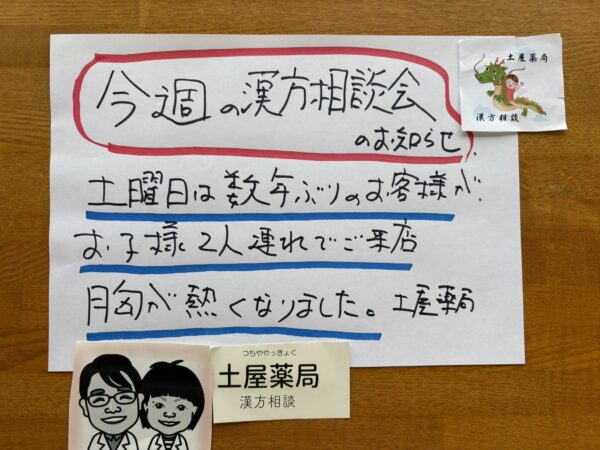 今週の漢方相談会
のお知らせ
土屋薬局
漢方相談
土曜日は数年ぶりのお客様が
お子様2人連れでご来店
胸が熱くなりました。土屋薬局
つちややっきょく
土屋薬局
漢方相談